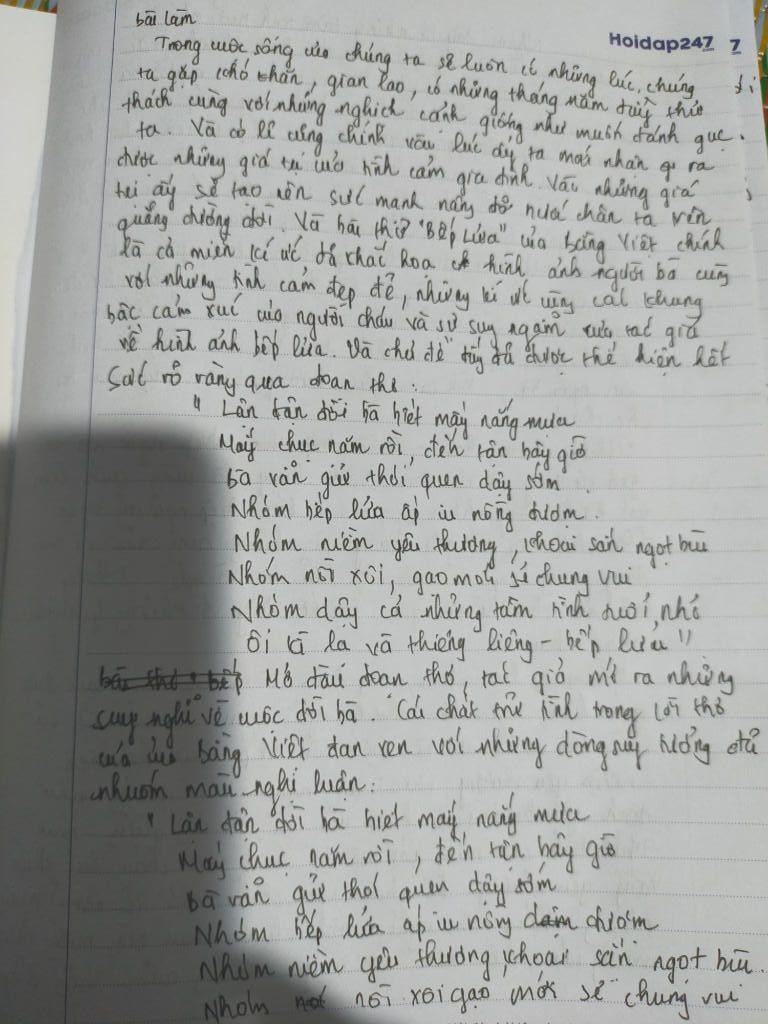 bài làm
Hoidap247 7
Trong cuộc sống của chúng ta sẽ luôn có những lúc, chúng
ta gặp khó khăn, gian lao, có những tháng năm đầy thử
thách cùng với những nghịch cảnh giống như muốn đánh gục
ta. Và có lẽ cũng chính vào lúc ấy ta mới nhận ra
được những giá trị của tình cảm gia đình. Vào những giá
trị ấy sẽ tạo nên sức mạnh nâng đỡ bước chân ta trên
quãng đường đời. Và bài thơ "Bếp Lửa" của bằng Việt chính
là cả miền kí ức đã khắc họa hình ảnh người bà cùng
với những tình cảm đẹp đẽ, những kí ức cùng cái khung
bậc cảm xúc của người cháu và sự suy ngẫm của tác giả
về hình ảnh bếp lửa. Và chủ đề đấy đã được thể hiện hết
sức rõ ràng qua đoan thơ:
" Lận đận đời bà biết mấy nắng mưa
Mấy chục năm rồi, đến tận bây giờ
Bà vẫn giữ thói quen dậy sớm
Nhóm bếp lửa ấp iu nồng đượm.
Nhóm niềm yêu thương, khoai sắn ngọt bùi
Nhóm nồi xôi, gạo mới sẻ chung vui
Nhóm dậy cả những tâm tình tuổi nhỏ
Ôi kì lạ và thiêng liêng - bếp lửa"
Mở đầu đoạn thơ, tác giả mở ra những
suy nghĩ về cuộc đời bà. Cái chất trữ tình trong lời thơ
của Bằng Việt đan xen với những dòng suy tưởng đã
nhuốm màu nghị luận:
" Lận đận đời bà biết mấy nắng mưa
Mấy chục năm rồi, đến tận bây giờ
Bà vẫn giữ thói quen dậy sớm
Nhóm bếp lửa ấp iu nồng đượm
Nhóm niềm yêu thương, khoai sắn ngọt bùi
Nhóm nồi xôi gạo mới sẻ chung vui